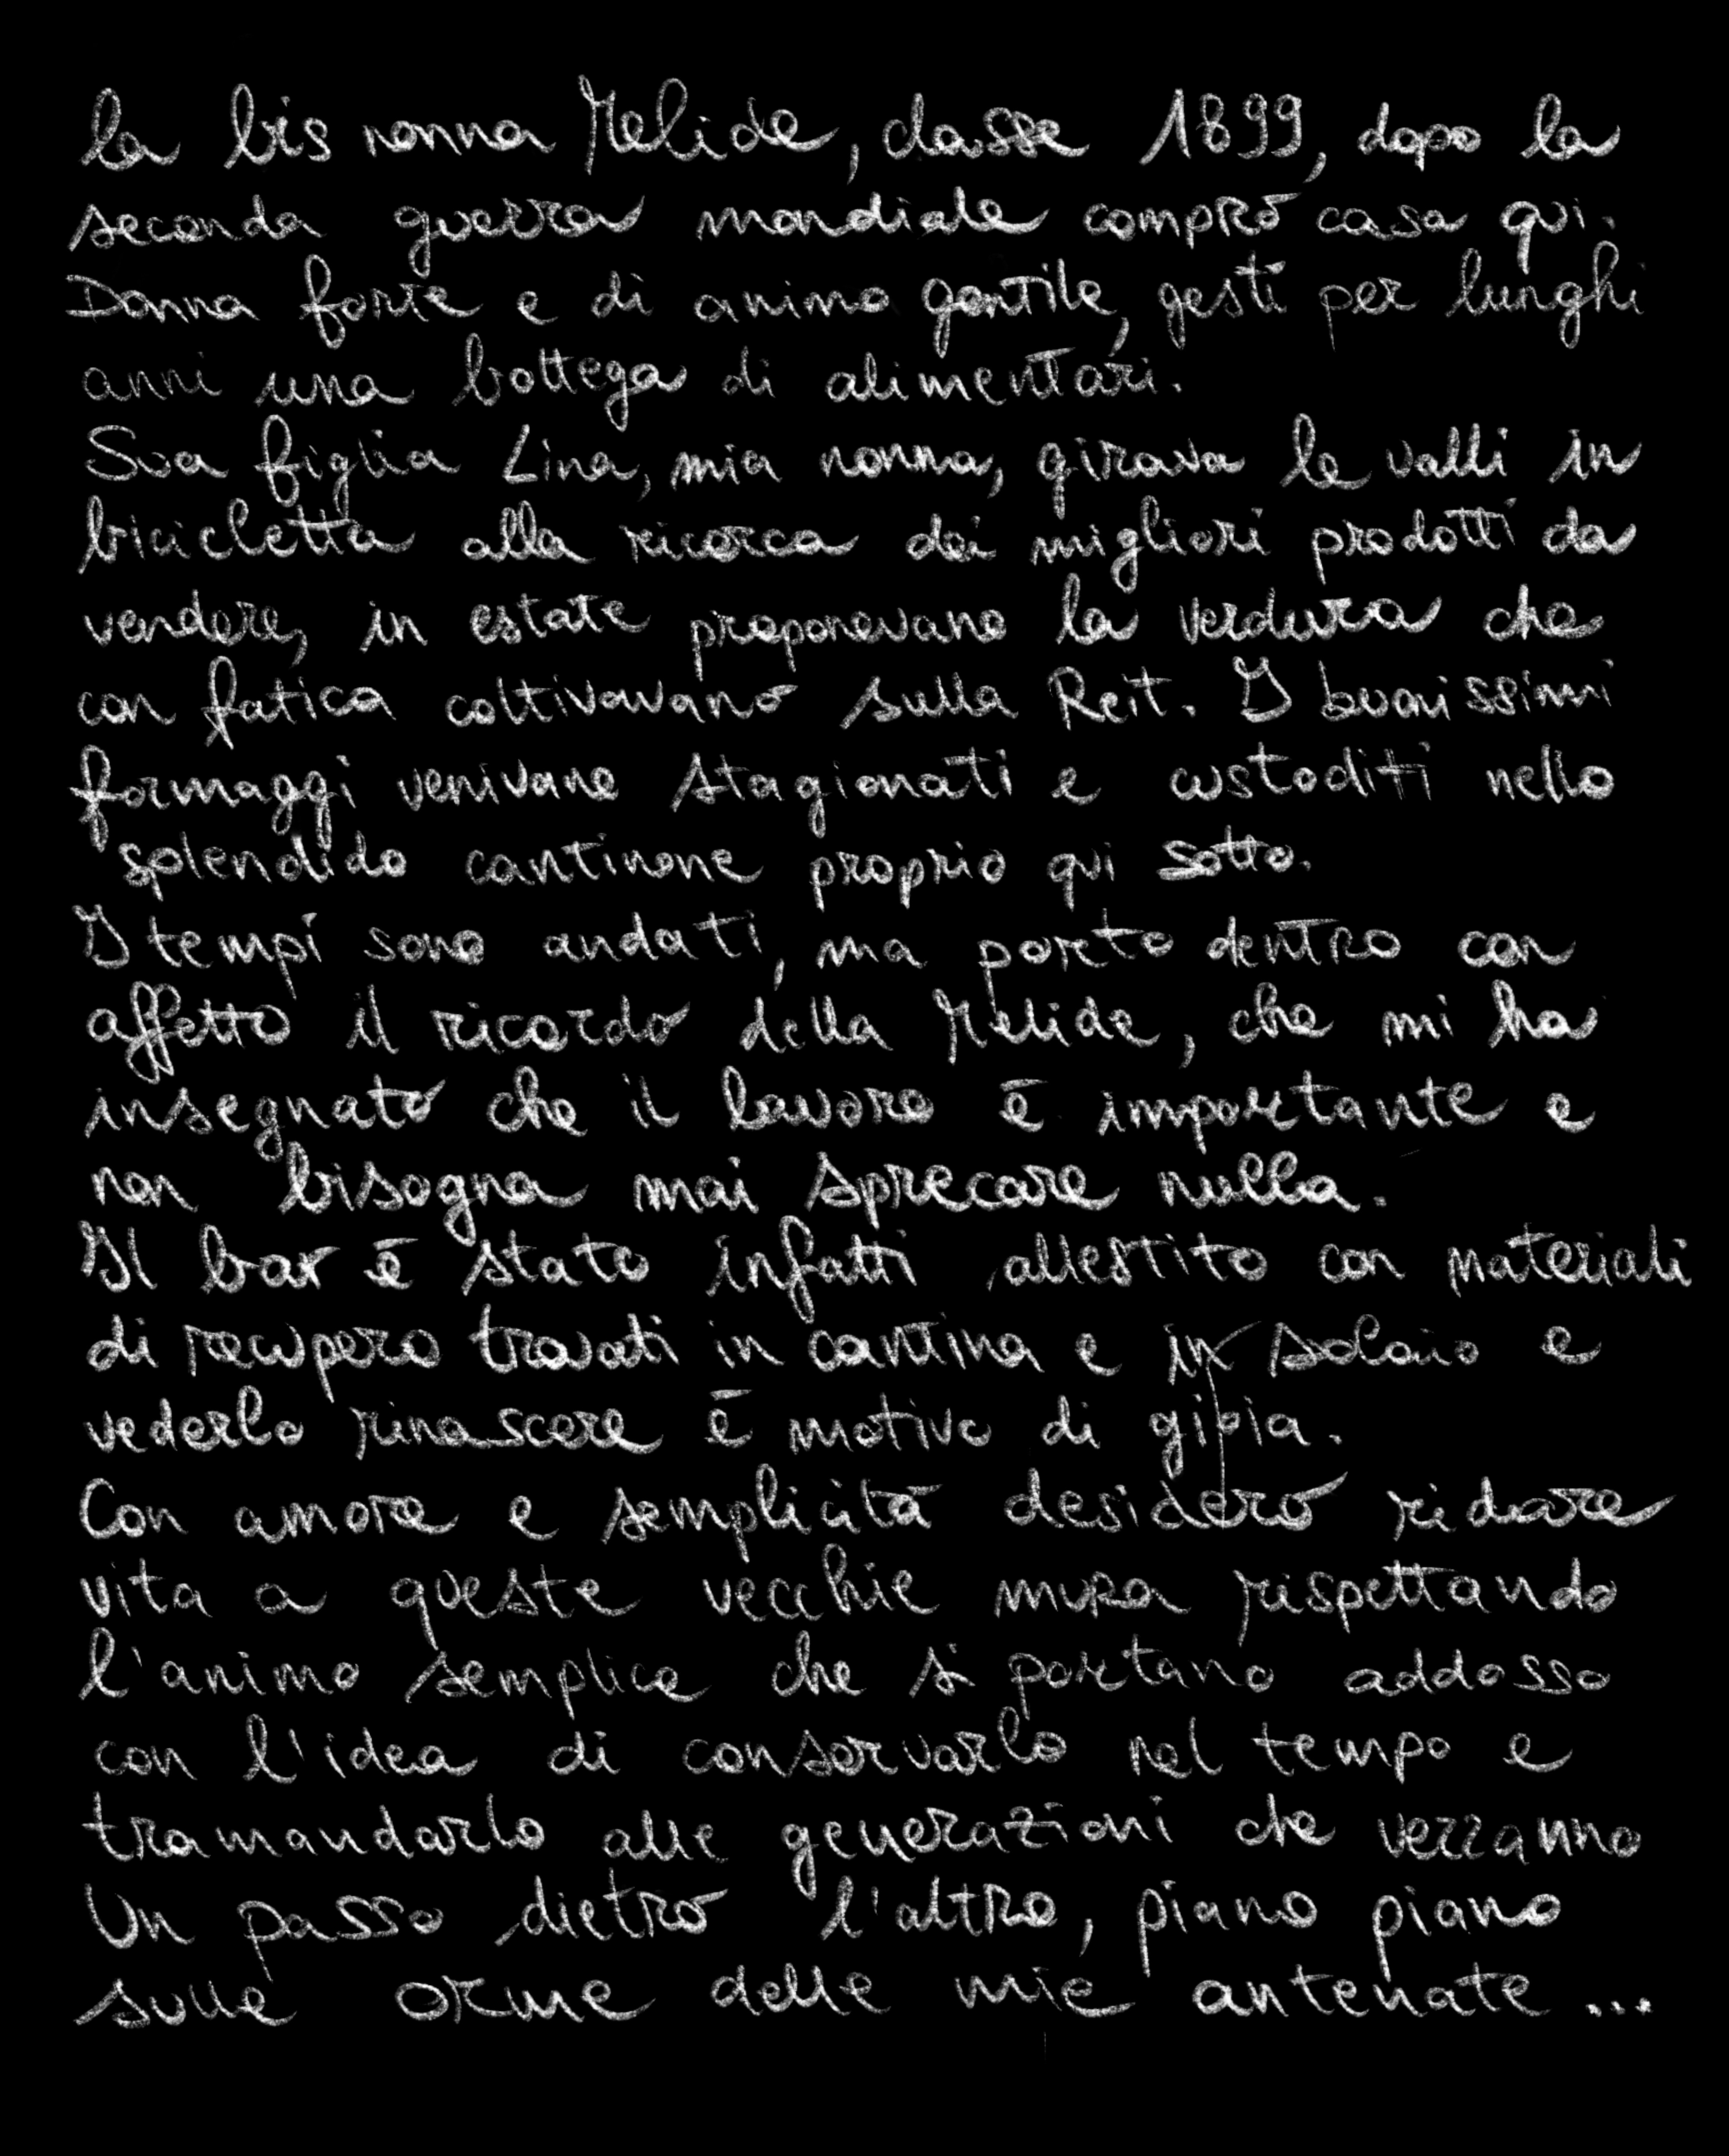 la bis nonna Melide, classe 1899, dopo la
seconda guerra mondiale comprò casa qui.
Donna forte e di animo gentile, gestì per lunghi
anni una bottega di alimentari.
Sua figlia Lina, mia nonna, girava le valli in
bicicletta alla ricerca dei migliori prodotti da
vendere, in estate proponevano la verdura che
con fatica coltivavano sulla Reit. I buonissimi
formaggi venivano stagionati e custoditi nello
splendido cantinone proprio qui sotto.
I tempi sono andati, ma porto dentro con
affetto il ricordo della Melide, che mi ha
insegnato che il lavoro è importante e
non bisogna mai sprecare nulla.
Il bar è stato infatti allestito con materiali
di recupero trovati in cantina e in solaio e
vederlo rinascere è motivo di gioia.
Con amore e semplicità desidero ridare
vita a queste vecchie mura rispettando
l'animo semplice che si portano addosso
con l'idea di conservarlo nel tempo e
tramandarlo alle generazioni che verranno
Un passo dietro l'altro, piano piano
sulle orme delle mie antenate ...